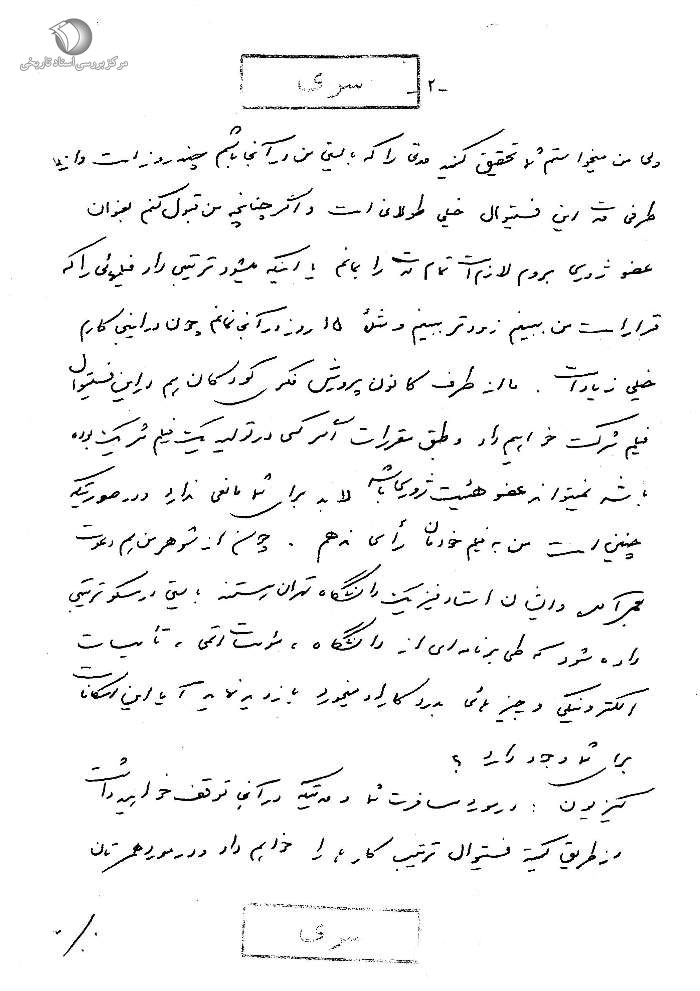 مرکز بررسی اسناد تاریخی
سری
-۲-
ولی من میخواستم شما تحقیق کنید مدتی را که بایستی من در آنجا باشم چند روز است و از
طرفی مدت این فستیوال خیلی طولانی است و اگر چنانچه من قبول کنم بعنوان
عضو ژوری بروم لازم است تمام مدت را بمانم یا اینکه میشود ترتیبی داد فیلمهائی را که
قرار است من ببینم زودتر ببینم و مثلاً ۱۵ روز در آنجا بمانم چون در اینجا کارم
خیلی زیاد است . ما از طرف کانون پرورش فکری کودکان هم در این فستیوال
فیلم شرکت خواهیم داد و طبق مقررات آمریکا کسی که در تولید یک فیلم شریک بوده
باشد نمیتواند عضو هیئت ژوری باشد لابد برای شما مانعی ندارد و در صورتیکه
چنین است من به فیلم خودمان رأی ندهم . چون از شوهر من هم دعوت
بعمل آمده و ایشان استاد فیزیک دانشگاه تهران هستند بایستی در مسکو ترتیبی
داده شود که طی برنامه‌ای از دانشگاه ، مؤسسات اتمی ، تأسیسات
الکترونیکی و چیزهائی که بدرد کار او میخورد بازدید نماید آیا این امکانات
برای شما وجود دارد ؟
: در مورد مسافرت شما و مدتیکه در آنجا توقف خواهید داشت
من از طریق کمیته فستیوال ترتیب کارها را خواهم داد و در مورد همسرتان
سری